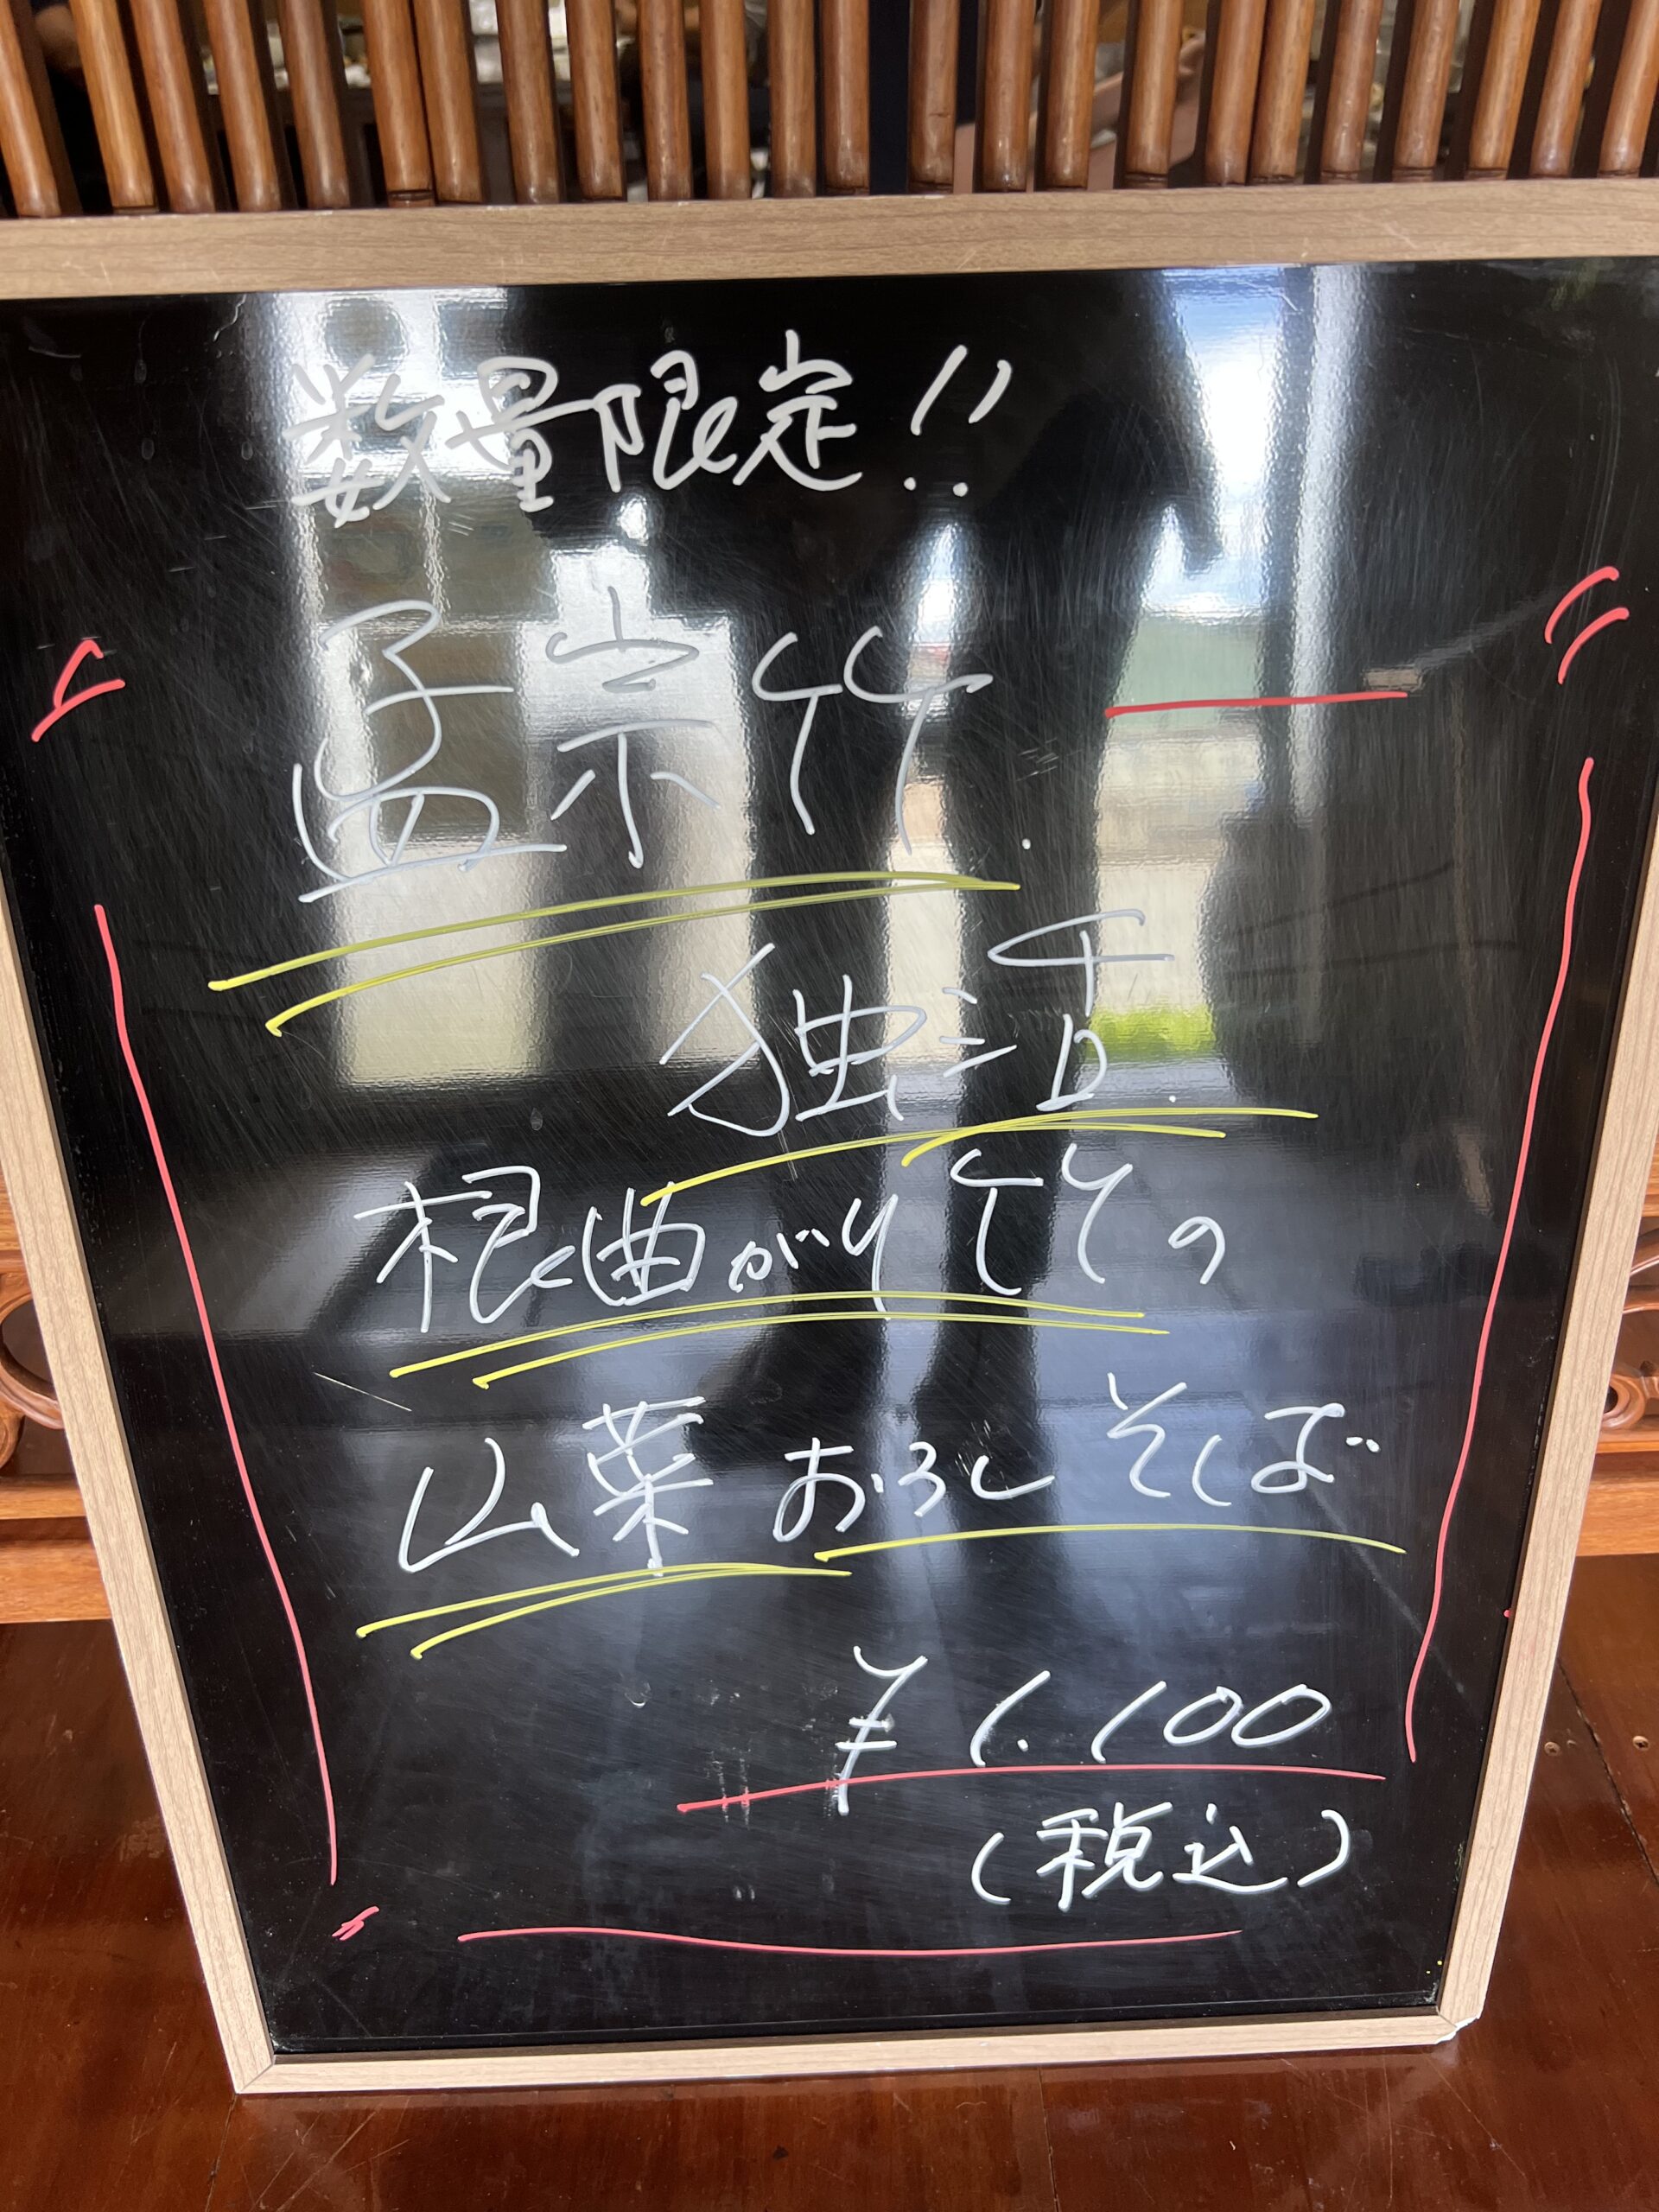 数量限定!!
孟宗竹
独活
根曲がり竹の
山菜おろしそば
¥1.100
(税込)